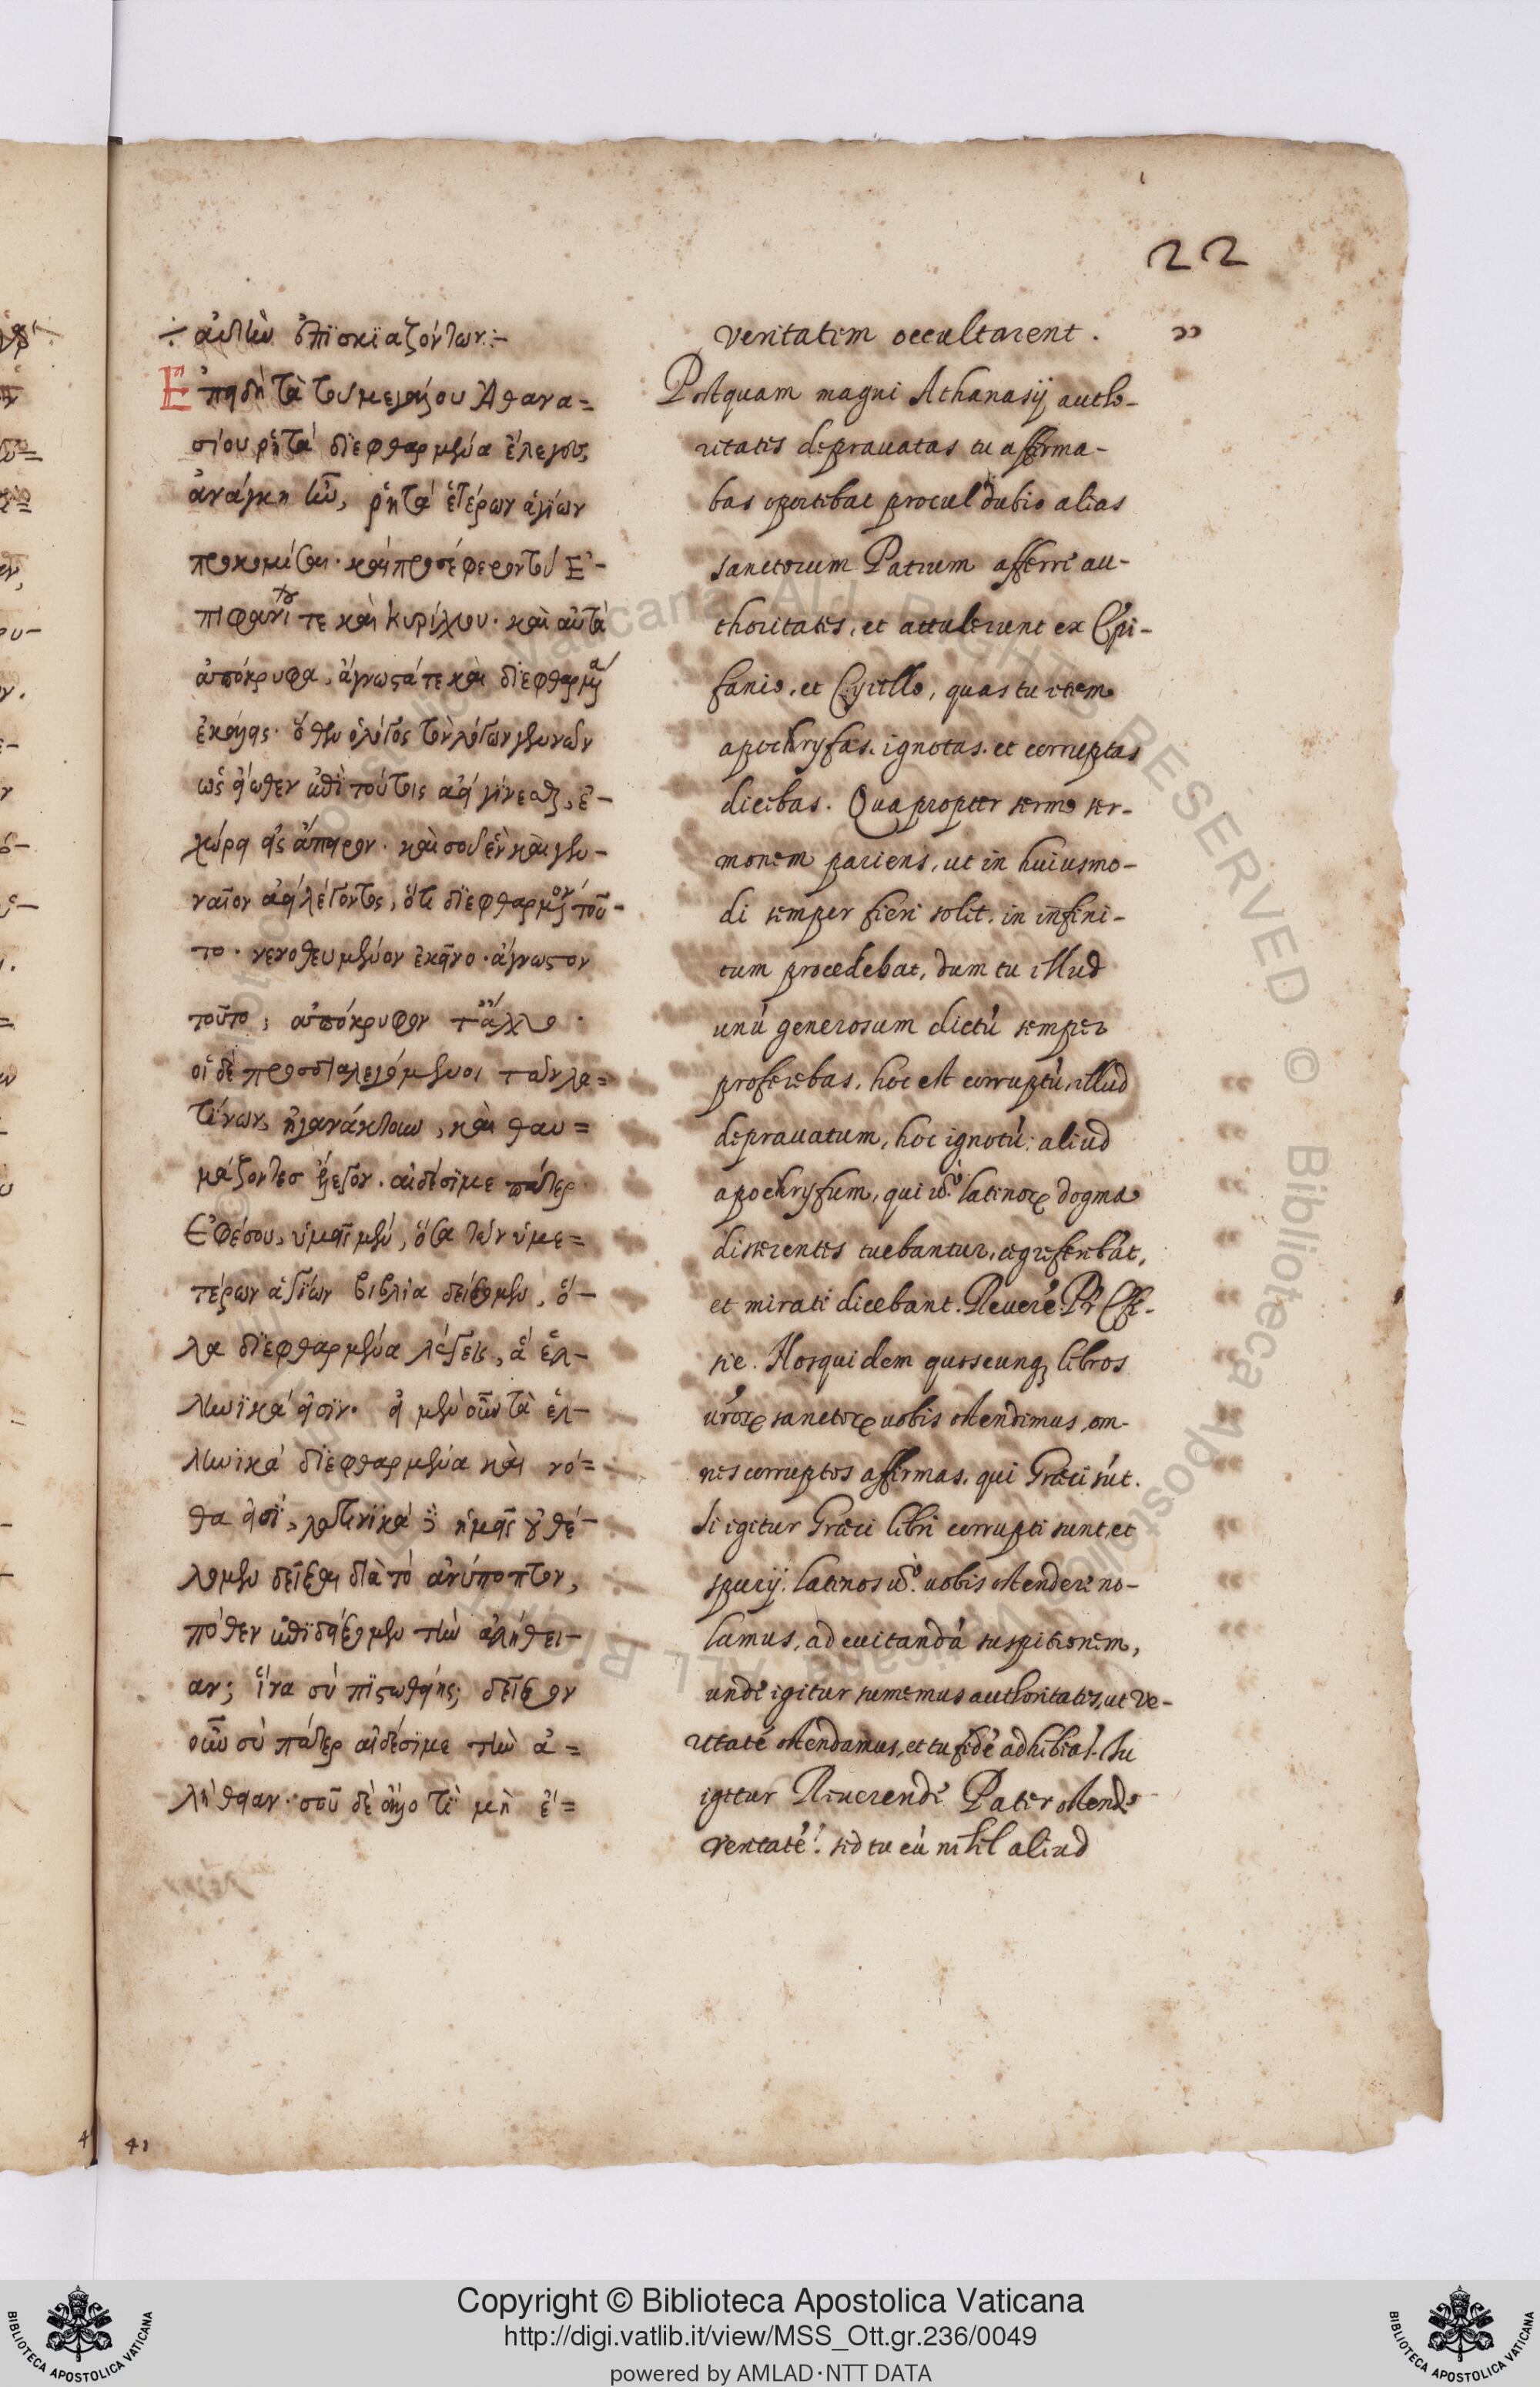 22
÷ αὐτὴν ἐπϊσκϊαζόντων:-
Ἐπειδὴ τὰ τοῦ μεγάλου Ἀθανα=
σίου ῥητὰ δϊεφθαρμένα ἔλεγες,
ἀνάγκη ἦν, ῥητὰ ἑτέρων ἁγίων
προκομίσαι. καὶ προσέφερον τοῦ Ἐ-
πιφανίου τε καὶ Κυρίλλου. καὶ αὐτὰ
ἀπόκρυφα, ἄγνωστά τε καὶ δϊεφθαρμένα
ἐκάλεις. ὅθεν ὁ λόγος τὸν λόγον γεννῶν
ὡς εἴωθεν ἐπὶ τούτοις ἀεὶ γίνεσθαι, ἐ-
χώρει εἰς ἄπειρον. καὶ σοῦ ἓν καὶ γεν-
ναῖον ἀεὶ λέγοντος, ὅτι δϊεφθαρμένον τοῦ-
το. νενοθευμένον ἐκεῖνο. ἄγνωστον
τοῦτο, ἀπόκρυφον τἄλλο.
οἱ δὲ προσδιαλεγόμενοι τῶν λα=
τίνων, ἠγανάκτουν, καὶ θαυ=
μάζοντες ἔλεγον. αἰδέσϊμε πάτερ
Ἐφέσου, ὑμεῖς μὲν, ὅσα τῶν ὑμε=
τέρων ἁγίων βιβλία δείξομεν, ὅ-
λα δϊεφθαρμένα λέγεις, ἃ ἑλ-
ληνϊκά εἰσϊν. εἰ μὲν οὖν τὰ ἑλ-
ληνικὰ δϊεφθαρμένα καὶ νό=
θα εἰσὶ, λατινϊκὰ δὲ ἡμεῖς οὐ θέ-
λομεν δεῖξαι διὰ τὸ ἀνύποπτον,
πόθεν ἐπϊδείξομεν τὴν ἀλήθει-
αν; ἵνα σὺ πϊστωθείης; δεῖξον
οὖν σὺ πάτερ αἰδέσϊμε τὴν ἀ=
λήθειαν. σοῦ δὲ ἄλλο τϊ μὴ ἔ=
veritatem occultarent.
Postquam magni Athanasij autho-
ritates deprauatas tu affirma-
bas oportebat procul dubio alias
sanctorum Patrum afferre au-
thoritates, et attulerunt ex Epi-
fanio, et Cyrillo, quas tu item
apochryfas. ignotas. et corruptas
dicebas. Quapropter sermo ser-
monem pariens, ut in huiusmo-
di semper fieri solet. in infini-
tum procedebat, dum tu illud
unú generosum dictú semper
proferebas, hoc est corruptú, illud
deprauatum, hoc ignotú: aliud
apochryfum, qui uº. latinorꝝ dogma
disserentes tuebantur, egreferebát,
et mirati dicebant. Reuere. Pr̃ Effe-
sie. Nosquidem quoscunqꝫ libros
úrorꝝ sanctorꝝ uobis ostendimus, om-
nes corruptos affirmas, qui Græci sút.
Si igitur Græci libri corrupti sunt, et
spurij: latinos uº. uobis ostendere no-
lumus, ad euitandá suspitionem,
unde igitur sumemus authoritates, ut ve-
ritaté ostendamus, et tu fidé adhibeas. Tu
igitur Reuerende Pater ostende
veritaté: sed tu cú nihil aliud
41
Copyright © Biblioteca Apostolica Vaticana
http://digi.vatlib.it/view/MSS_Ott.gr.236/0049
powered by AMLAD·NTT DATA